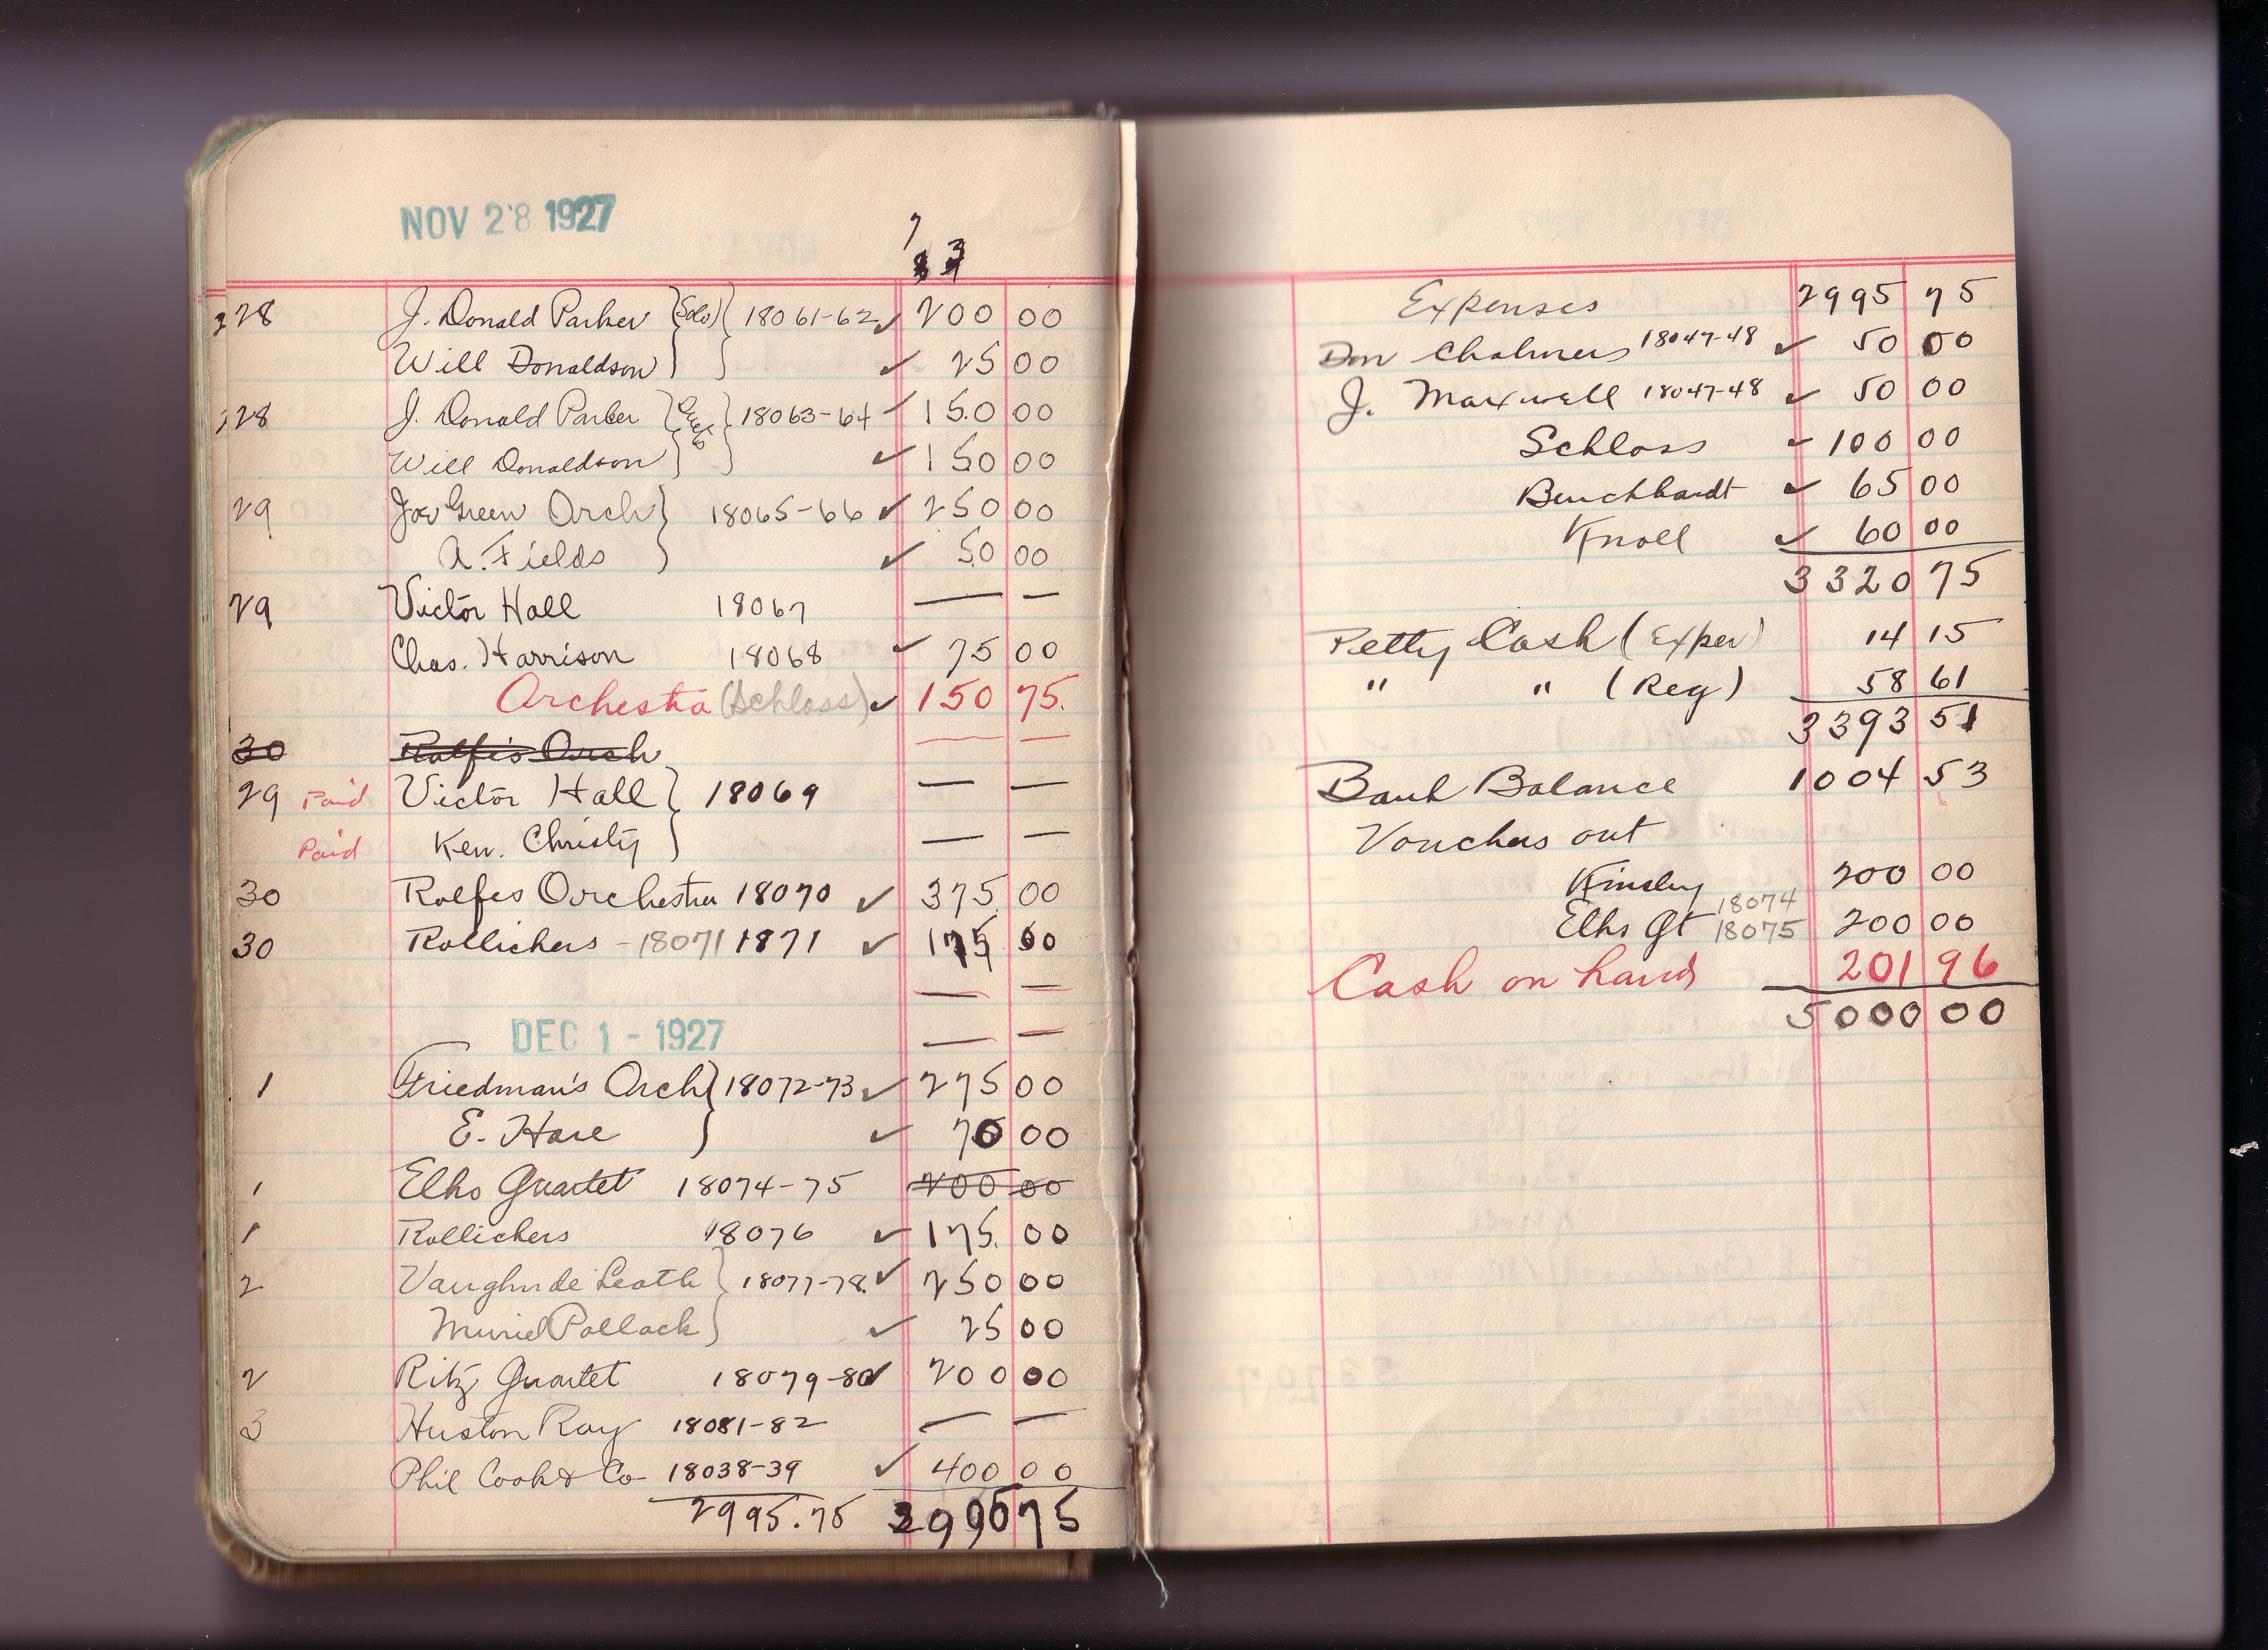 NOV 28 1927
7
3
28 J. Donald Parker (Solo) 18061-62 ✓ 200 00
Will Donaldson ✓ 25 00
28 J. Donald Parker 18063-64 ✓ 150 00
Will Donaldson ✓ 150 00
29 Joe Green Orch 18065-66 ✓ 250 00
A. Fields ✓ 50 00
29 Victor Hall 18067 — —
Chas. Harrison 18068 ✓ 75 00
Orchestra (Schloss) ✓ 150 75.
30 Rolfe's Orch — —
29 Paid Victor Hall 18069 — —
Paid Ken. Christy — —
30 Rolfes Orchestra 18070 ✓ 375 00
30 Rollickers - 18071 1871 ✓ 175 00
— —
DEC 1 - 1927 — —
1 Friedman's Orch 18072-73 ✓ 275 00
E. Hare ✓ 70 00
1 Elks Quartet 18074-75 200 00
1 Rollickers 18076 ✓ 175. 00
2 Vaughn de Leath 18077-78. ✓ 250 00
Muriel Pollock ✓ 25 00
2 Ritz Quartet 18079-80 ✓ 200 00
3 Huston Ray 18081-82 — —
Phil Cook & Co- 18038-39 ✓ 400 00
2995.75 2995 75
Expenses 2995 75
Don Chalmers 18047-48 ✓ 50 00
J. Maxwell 18047-48 ✓ 50 00
Schloss ✓ 100 00
Burchhardt ✓ 65 00
Knoll ✓ 60 00
3320 75
Petty Cash (Exper) 14 15
" " (Reg) 58 61
3393 51
Bank Balance 1004 53
Vouchers out
Kinsley 200 00
Elks Qt 18074 18075 200 00
Cash on hand 201 96
5000 00